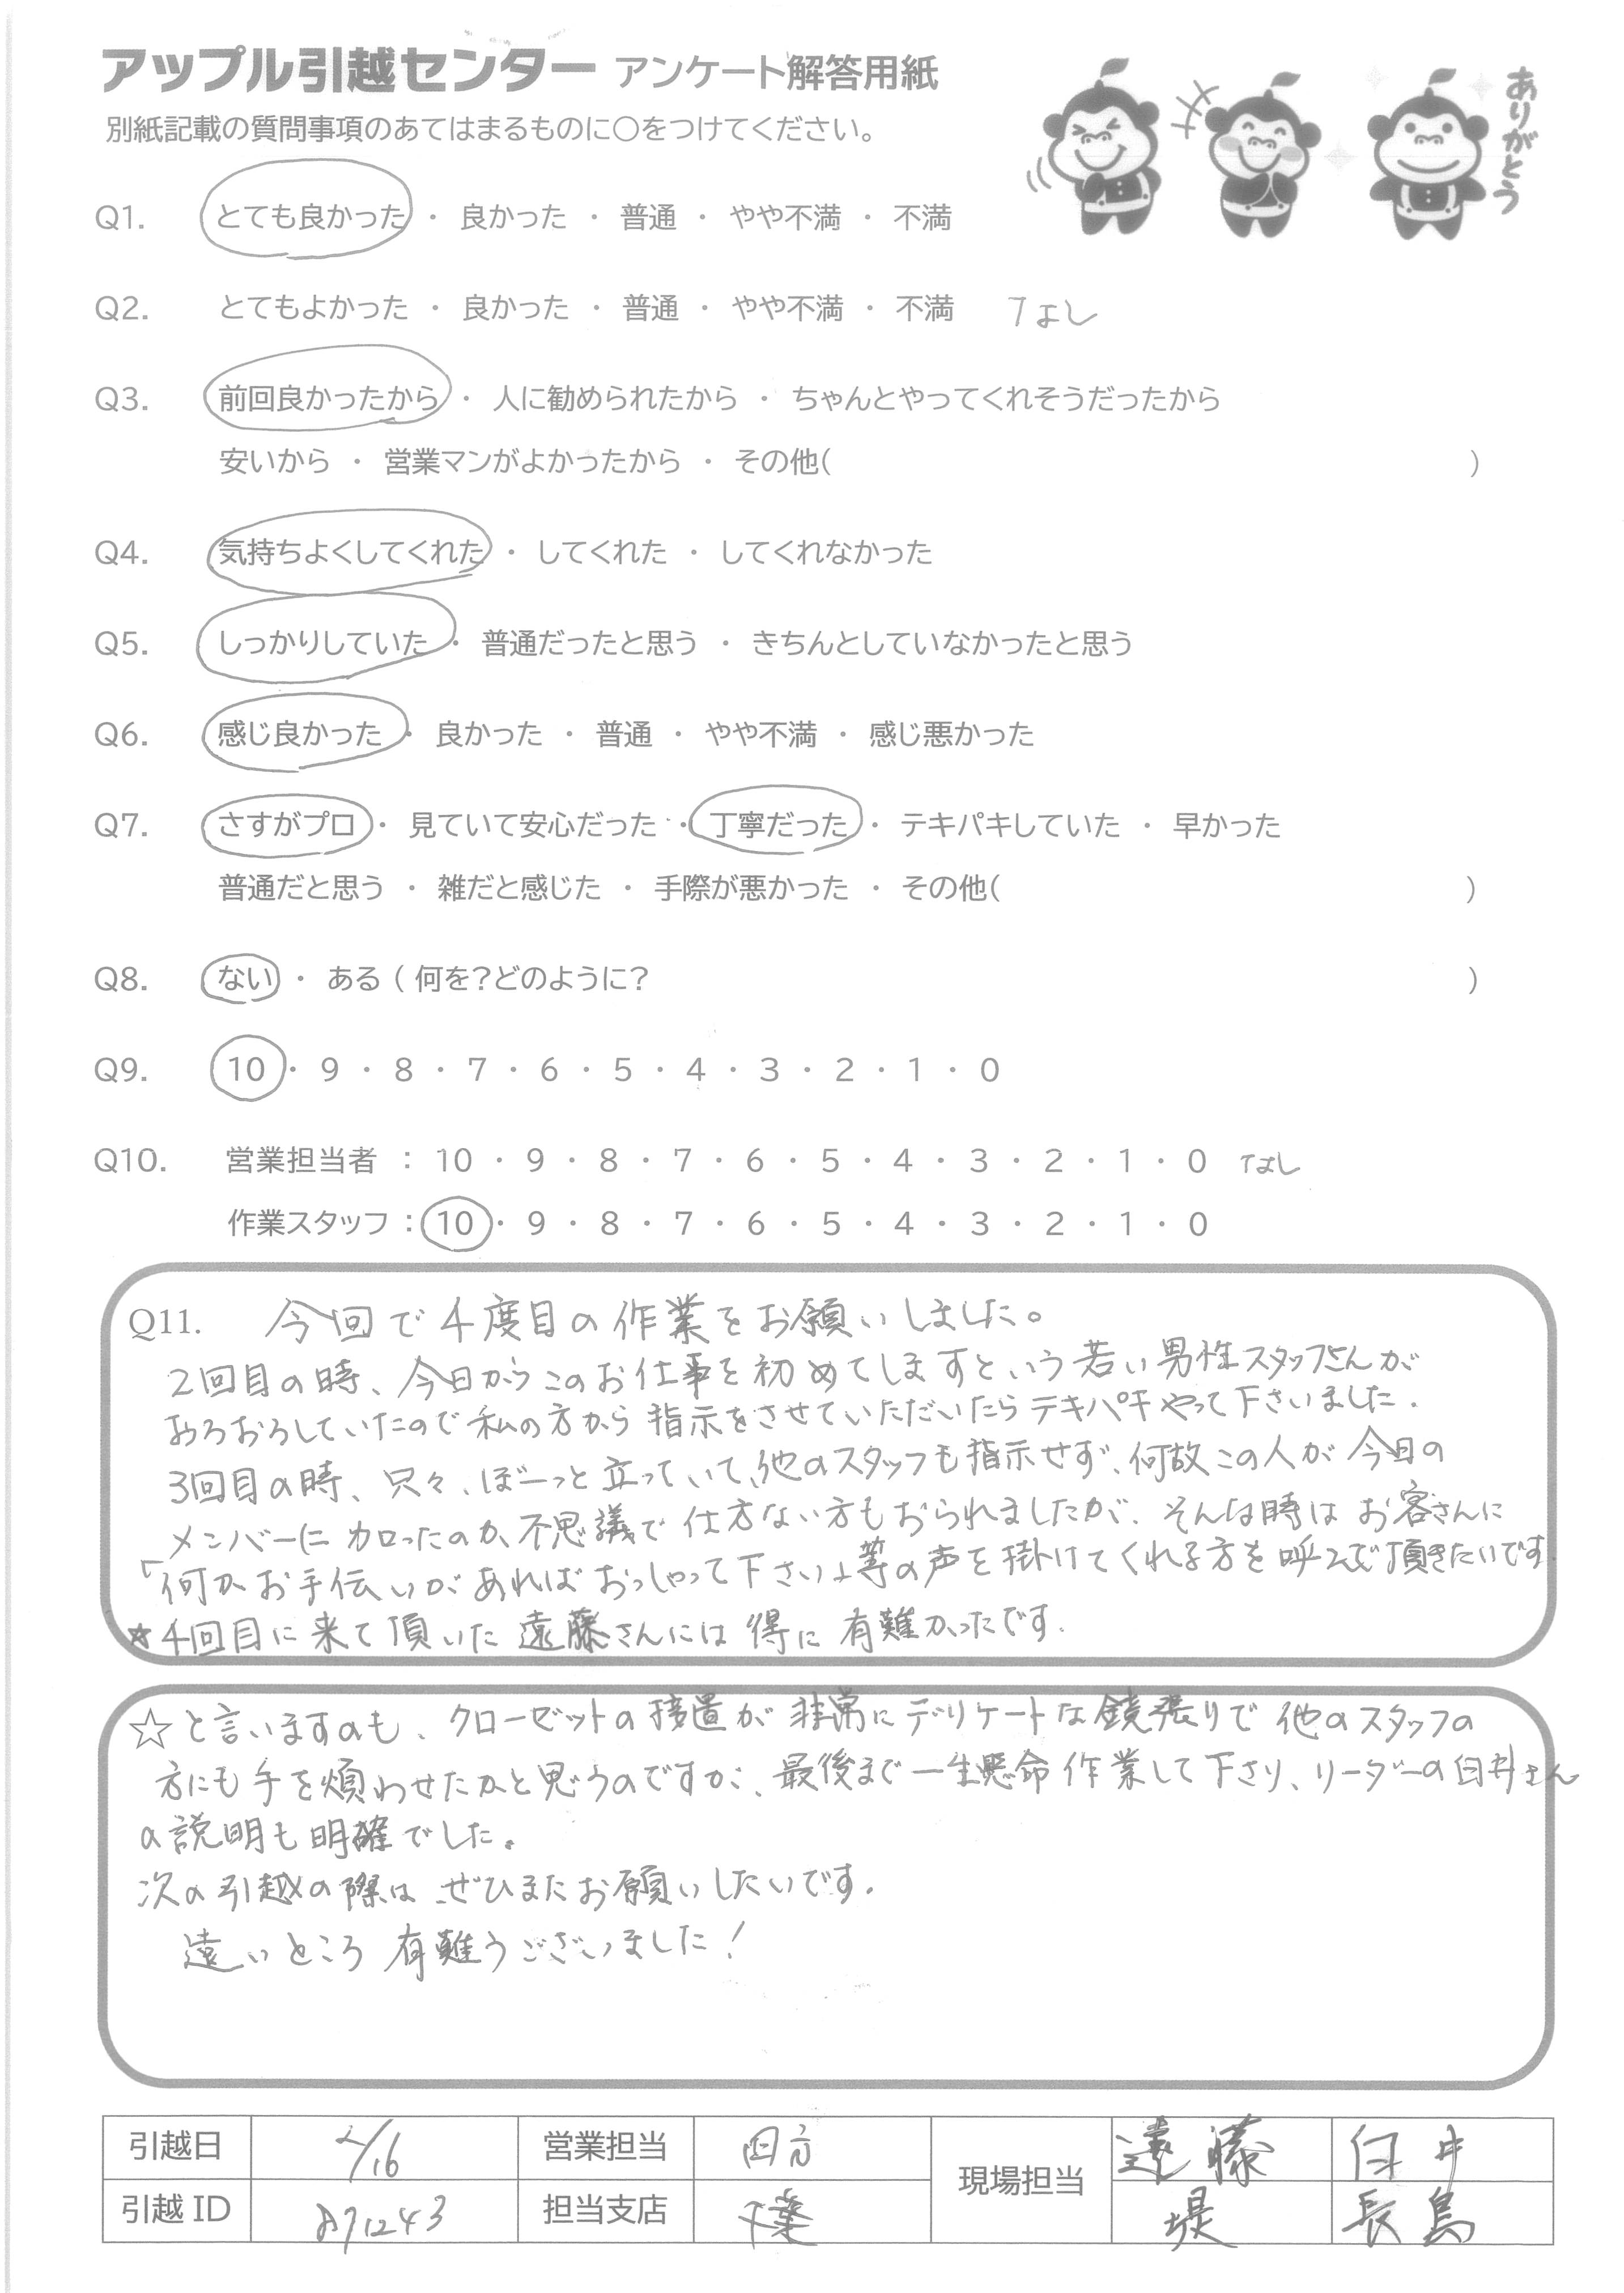 アップル引越センター アンケート解答用紙
ありがとう
別紙記載の質問事項のあてはまるものに○をつけてください。
Q1. とても良かった ・ 良かった ・ 普通 ・ やや不満 ・ 不満
Q2. とてもよかった ・ 良かった ・ 普通 ・ やや不満 ・ 不満 なし
Q3. 前回良かったから ・ 人に勧められたから ・ ちゃんとやってくれそうだったから
安いから ・ 営業マンがよかったから ・ その他( )
Q4. 気持ちよくしてくれた ・ してくれた ・ してくれなかった
Q5. しっかりしていた ・ 普通だったと思う ・ きちんとしていなかったと思う
Q6. 感じ良かった ・ 良かった ・ 普通 ・ やや不満 ・ 感じ悪かった
Q7. さすがプロ ・ 見ていて安心だった ・ 丁寧だった ・ テキパキしていた ・ 早かった
普通だと思う ・ 雑だと感じた ・ 手際が悪かった ・ その他( )
Q8. ない ・ ある ( 何を?どのように? )
Q9. 10 ・ 9 ・ 8 ・ 7 ・ 6 ・ 5 ・ 4 ・ 3 ・ 2 ・ 1 ・ 0
Q10. 営業担当者 : 10 ・ 9 ・ 8 ・ 7 ・ 6 ・ 5 ・ 4 ・ 3 ・ 2 ・ 1 ・ 0 なし
作業スタッフ : 10 ・ 9 ・ 8 ・ 7 ・ 6 ・ 5 ・ 4 ・ 3 ・ 2 ・ 1 ・ 0
Q11. 今回で4度目の作業をお願いしました。
2回目の時、今日からこのお仕事を初めてしますという若い男性スタッフさんが
おろおろしていたので私の方から指示をさせていただいたらテキパキやって下さいました.
3回目の時、只々、ぼーっと立っていて、他のスタッフも指示せず、何故この人が今日の
メンバーに加ったのか、不思議で仕方ない方もおられましたが、そんな時はお客さんに
「何かお手伝いがあればおっしゃって下さい」等の声を掛けてくれる方を呼んで頂きたいです
★4回目に来て頂いた遠藤さんには得に有難かったです.
☆と言いますのも、クローゼットの接置が非常にデリケートな鏡張りで他のスタッフの
方にも手を煩わせたかと思うのですが、最後まで一生懸命作業して下さり、リーダーの臼井さん
の説明も明確でした。
次の引越の際は、ぜひまたお願いしたいです.
遠いところ有難うございました!
引越日 2/16 営業担当 四方 現場担当 遠藤 臼井
引越ID 担当支店 千葉 堤 長島